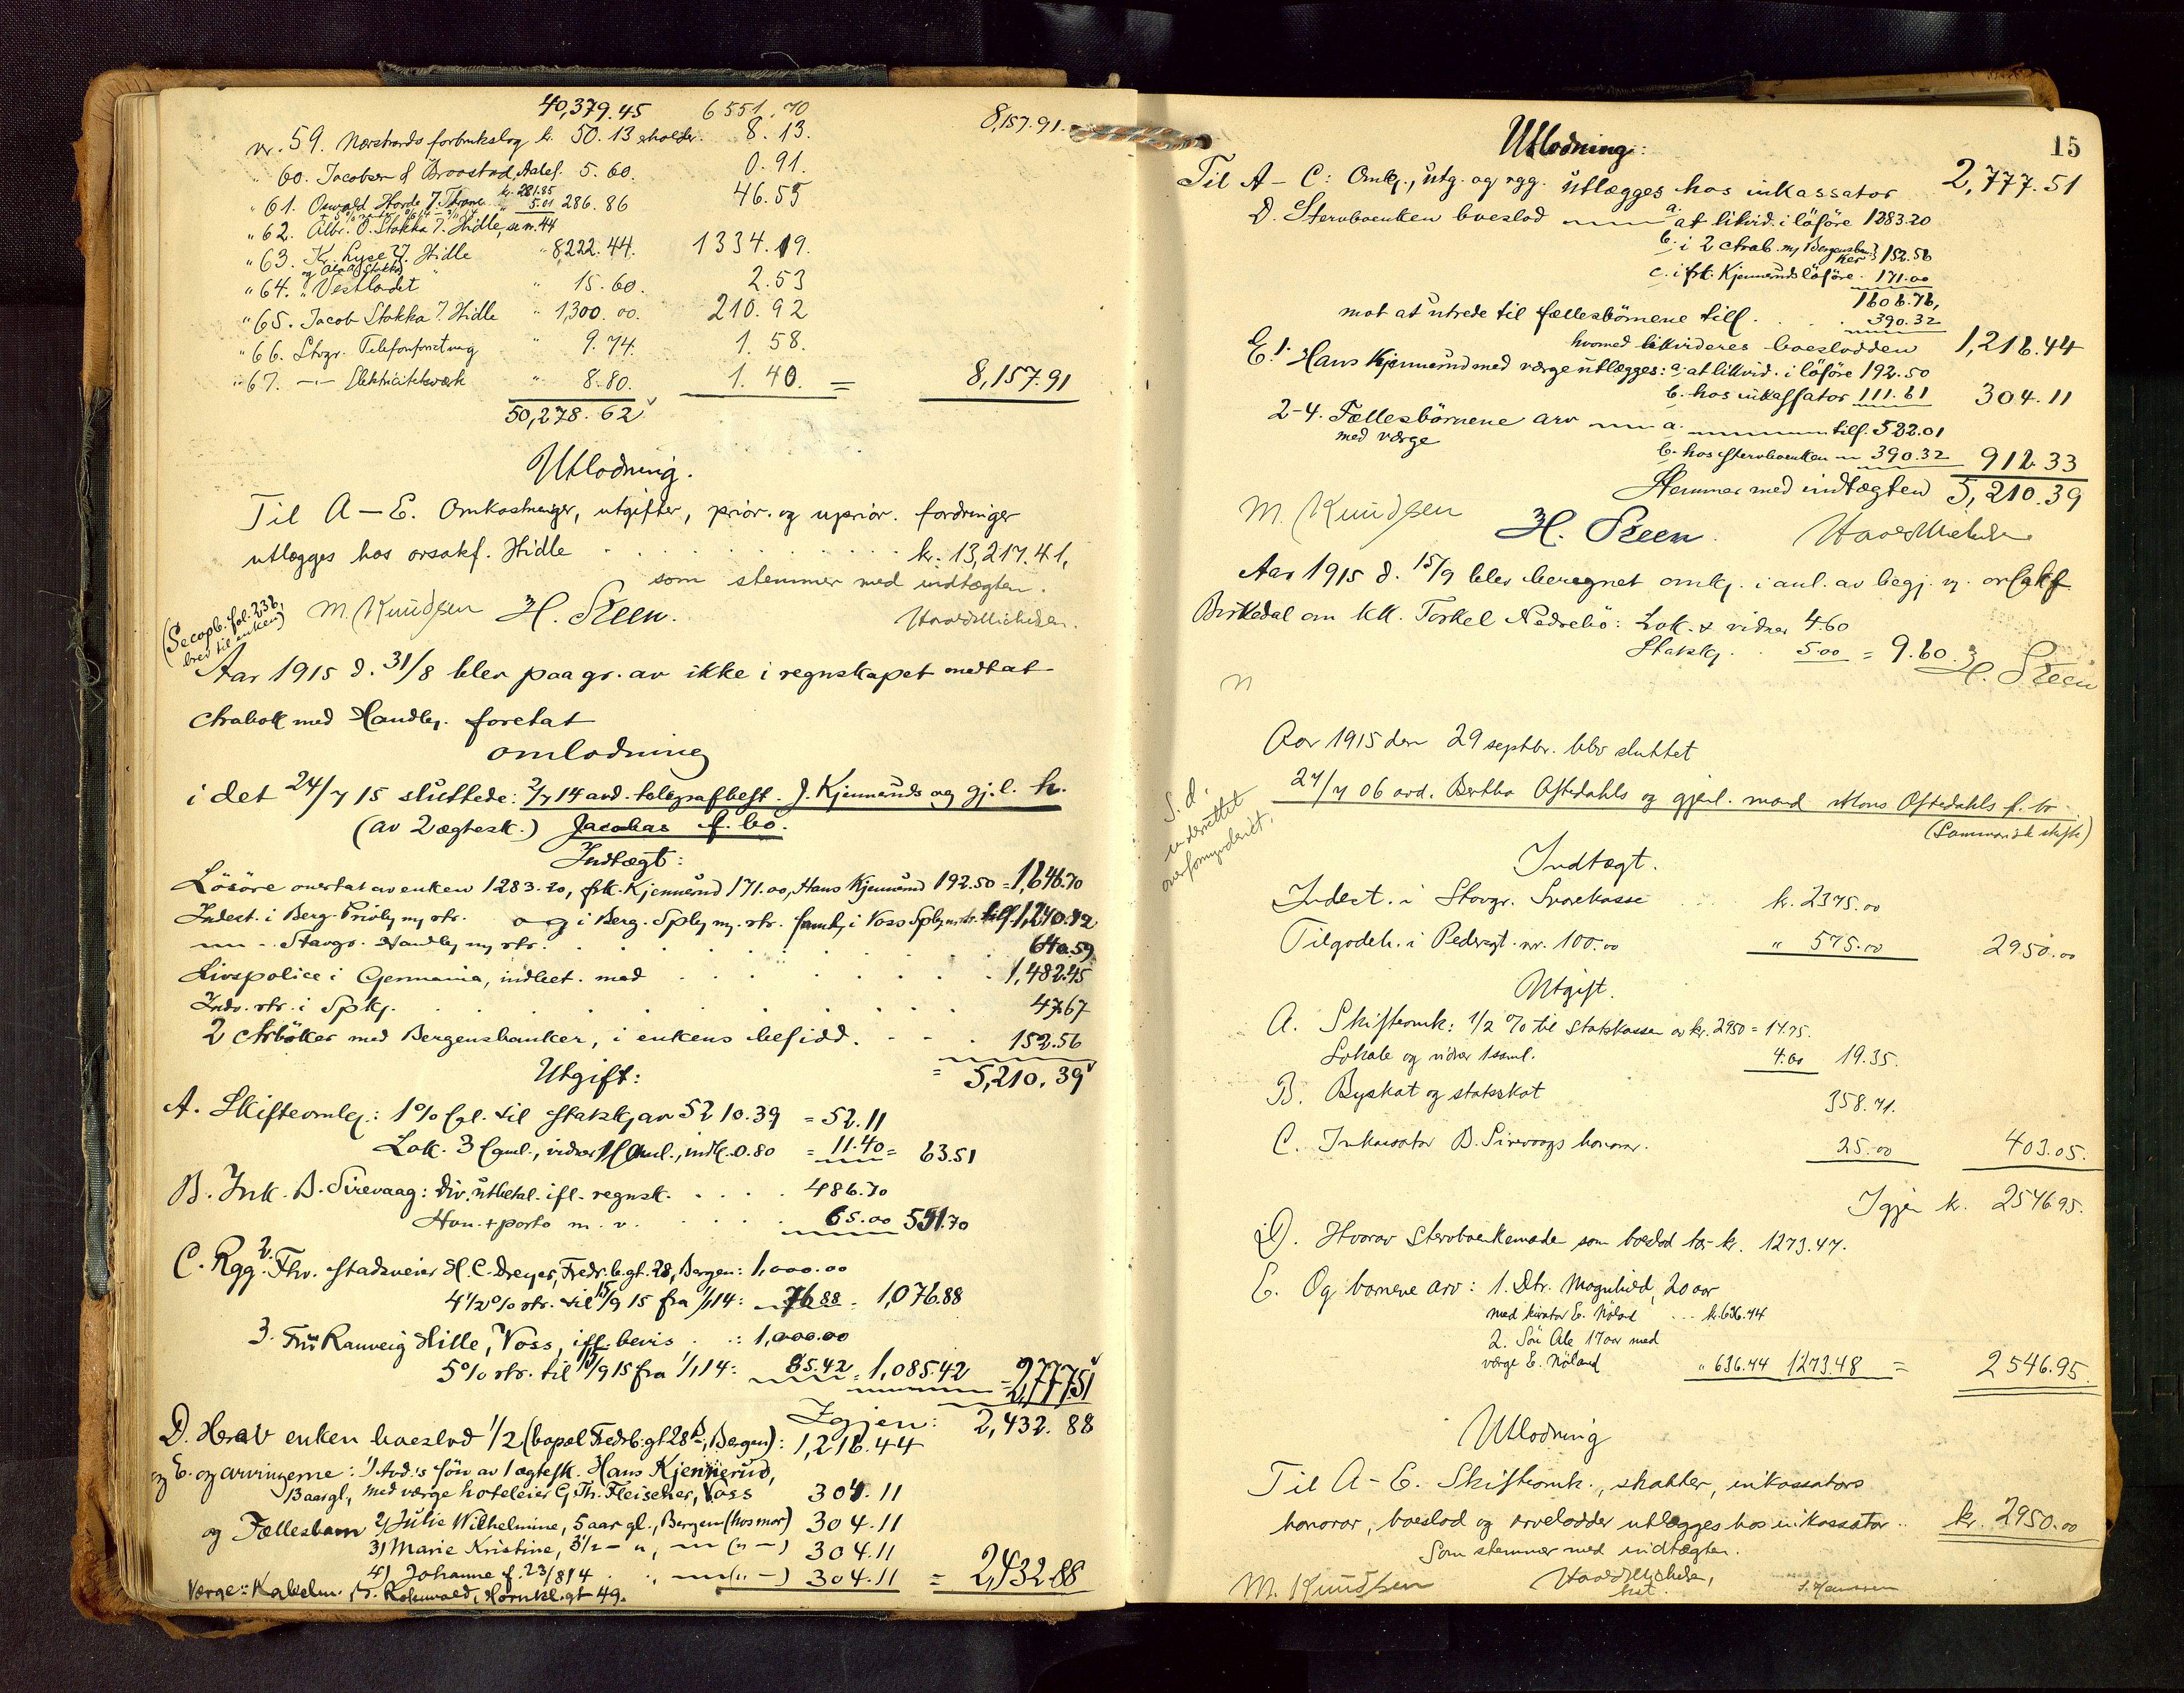 40,379.45 6551.70 8,157.91.
nr. 59. Nærstrands forbrukslag kr. 50.13 erholder. 8.13.
" 60. Jacobsen & Braastad, Aalef. 5.60. 0.91.
" 61. Oswald Horde 7. Thrane kr. 281.85 5.01 286.86 46.55
" 62. Albr. O. Stokka 7. Hidle, se nr. 44
" 63. Kr. Lyse 7. Hidle " 8222.44. 1334.19.
" 64. "Vestlandet " 15.60. 2.53
" 65. Jacob Stokka 7. Hidle " 1,300.00. 210.92
" 66. Stvgr. Telefonforretning " 9.74. 1.58.
" 67. —"— Elektricitetsverk " 8.80. 1.40. = 8,157.91
50,278.62
Utlodning.
Til A – E. Omkostninger, utgifter, prior. og uprior. fordringer
utlægges hos orsakf. Hidle . . . . kr. 13,217.41,
som stemmer med indtægten.
M. Knudsen H. Steen.
(Se copb. fol. 238,
brev til enken)
Aar 1915 d. 31/8 blev paa gr. av ikke i regnskapet medtat
ctrabok med Handby. foretat
omlodning
i det 24/7 15 sluttede: 7/7 14 avd. telegrafbest. J. Kjenneruds og gj.l. h.
(av 2 ægtesk.) Jacobas f. bo.
Indtægt:
Lösöre overtat av enken 1283.20, frk. Kjennerud 171.00, Hans Kjennerud 192.50 = 1,646.70
Indest. i Berg. Privby m/ rtr. og i Berg. Spby m. rtr. samt i Voss Spby m. rtr. tils. 1,240.42
—"— Stavgr. Handby m/ rtr. 640.59
Livspolice i Germania, indbet. med 1,482.45
Indv. rtr. i Spkj. 47.67
2 ctrböker med Bergensbanker, i enkens besidd. 152.56
= 5,210.39
Utgift:
A. Skifteomk.: 1% fol. til Statskj. av 5210.39 = 52.11
Lok. 3 saml., vidner 1 saml., indk. 0.80 = 11.40 = 63.51
B. Ink. B. Sirevaag: div. utbetal. ifl. regnsk. . . . 486.70
Hon. + porto m. v. . . . 65.00 551.70
C. Rgg. 2. Fhv. stadsveier H. C. Dreyer, Fredr. b. gt. 28, Bergen: 1,000.00
4 1/2% rtr. til 15/9 15 fra 1/1 14: 76.88 = 1,076.88
3. Fru Ranveig Hille, Voss, ifl. bevis . .: 1,000.00
5% rtr. til 15/9 15 fra 1/1 14: 85.42 = 1,085.42 = 2,777.51
Igjen: 2,432.88
D. Herav enken boeslod 1/2 (bopæl Fredb. gt 28 B, Bergen): 1,216.44
og E. og arvingerne: 1) Avd.'s sön av 1 ægtesk. Hans Kjennerud,
13 aar gl., med værge hoteleier G. Th. Fleischer, Voss 304.11
og Fællesbarn 2) Julie Wilhelmine, 5 aar gl., Bergen (hos mor) 304.11
3) Marie Kristine, 3 1/2 – ", —"— (" –) 304.11
4) Johanne f. 23/8 14 . ., —"— (" –) 304.11 = 2,432.88
Værge: Kakelm. J. Rosenvold, Hornkl. gt 49.
15
Utlodning:
Til A – C: Omk., utg. og rgg. utlægges hos inkassator 2,777.51
D. Stervboenken boeslod —"— a. at likvid. i löföre 1283.20
b. i 2 ctrab. m/ Bergensbanker 152.56
c. i frk. Kjenneruds löföre. 171.00
1606.76,
mot at utrede til fællesbörnene till. . . 390.32
hvormed likvideres boeslodden 1,216.44
E. 1. Hans Kjennerud med værge utlægges: a. at likvid. i löföre 192.50
b. hos inkassator 111.61 304.11
2-4. Fællesbörnene arv —"— a. —"— tils. 522.01
med værge
b. hos stervboenken — 390.32 912.33
Stemmer med indtægten 5,210.39
M. Knudsen H. Steen.
Aar 1915 d. 15/9 blev beregnet omk. i anl. av begj. n. orsakf.
Birkedal om kk. Torkel Nedrebö: Lok. & vidner 4.60
Statskj. . 5.00 = 9.60. H. Steen
Aar 1915 den 29 septbr. blev sluttet
27/7 06 avd. Bertha Oftedahls og gjenl. mand Mons Oftedahls f. bo.
(Summarisk skifte)
S. d.
underrettet
overformynderiet.
Indtægt.
Indest. i Stavgr. Sparekasse kr. 2375.00
Tilgodeh. i Pedersgt. nr. 100.00 " 575.00 2950.00
Utgift.
A. Skifteomk: 1/2 % til Statskassen av kr. 2950 = 14.75.
Lokale og vidner 1 saml. 4.60 19.35.
B. Byskat og statsskat 358.71.
C. Inkassator B. Sirevaags honorar. 25.00 403.05.
Igjen k. 2546.95.
D. Hvorav Stervboenkemanden som boeslod tar kr. 1273.47.
E. Og barnene arv: 1. Dtr. Magnhild, 20 aar
med kurator E. Nöland . . . kr. 636.74
2. Sön Ale 17 aar med
værge E. Nöland " 636.74 1273.48 = 2546.95.
Utlodning
Til A – E. Skifteomk., skatter, inkassators
honorar, boeslod og arvelodder utlægges hos inkassator .. kr. 2950.00
Som stemmer med indtægten.
M. Knudsen